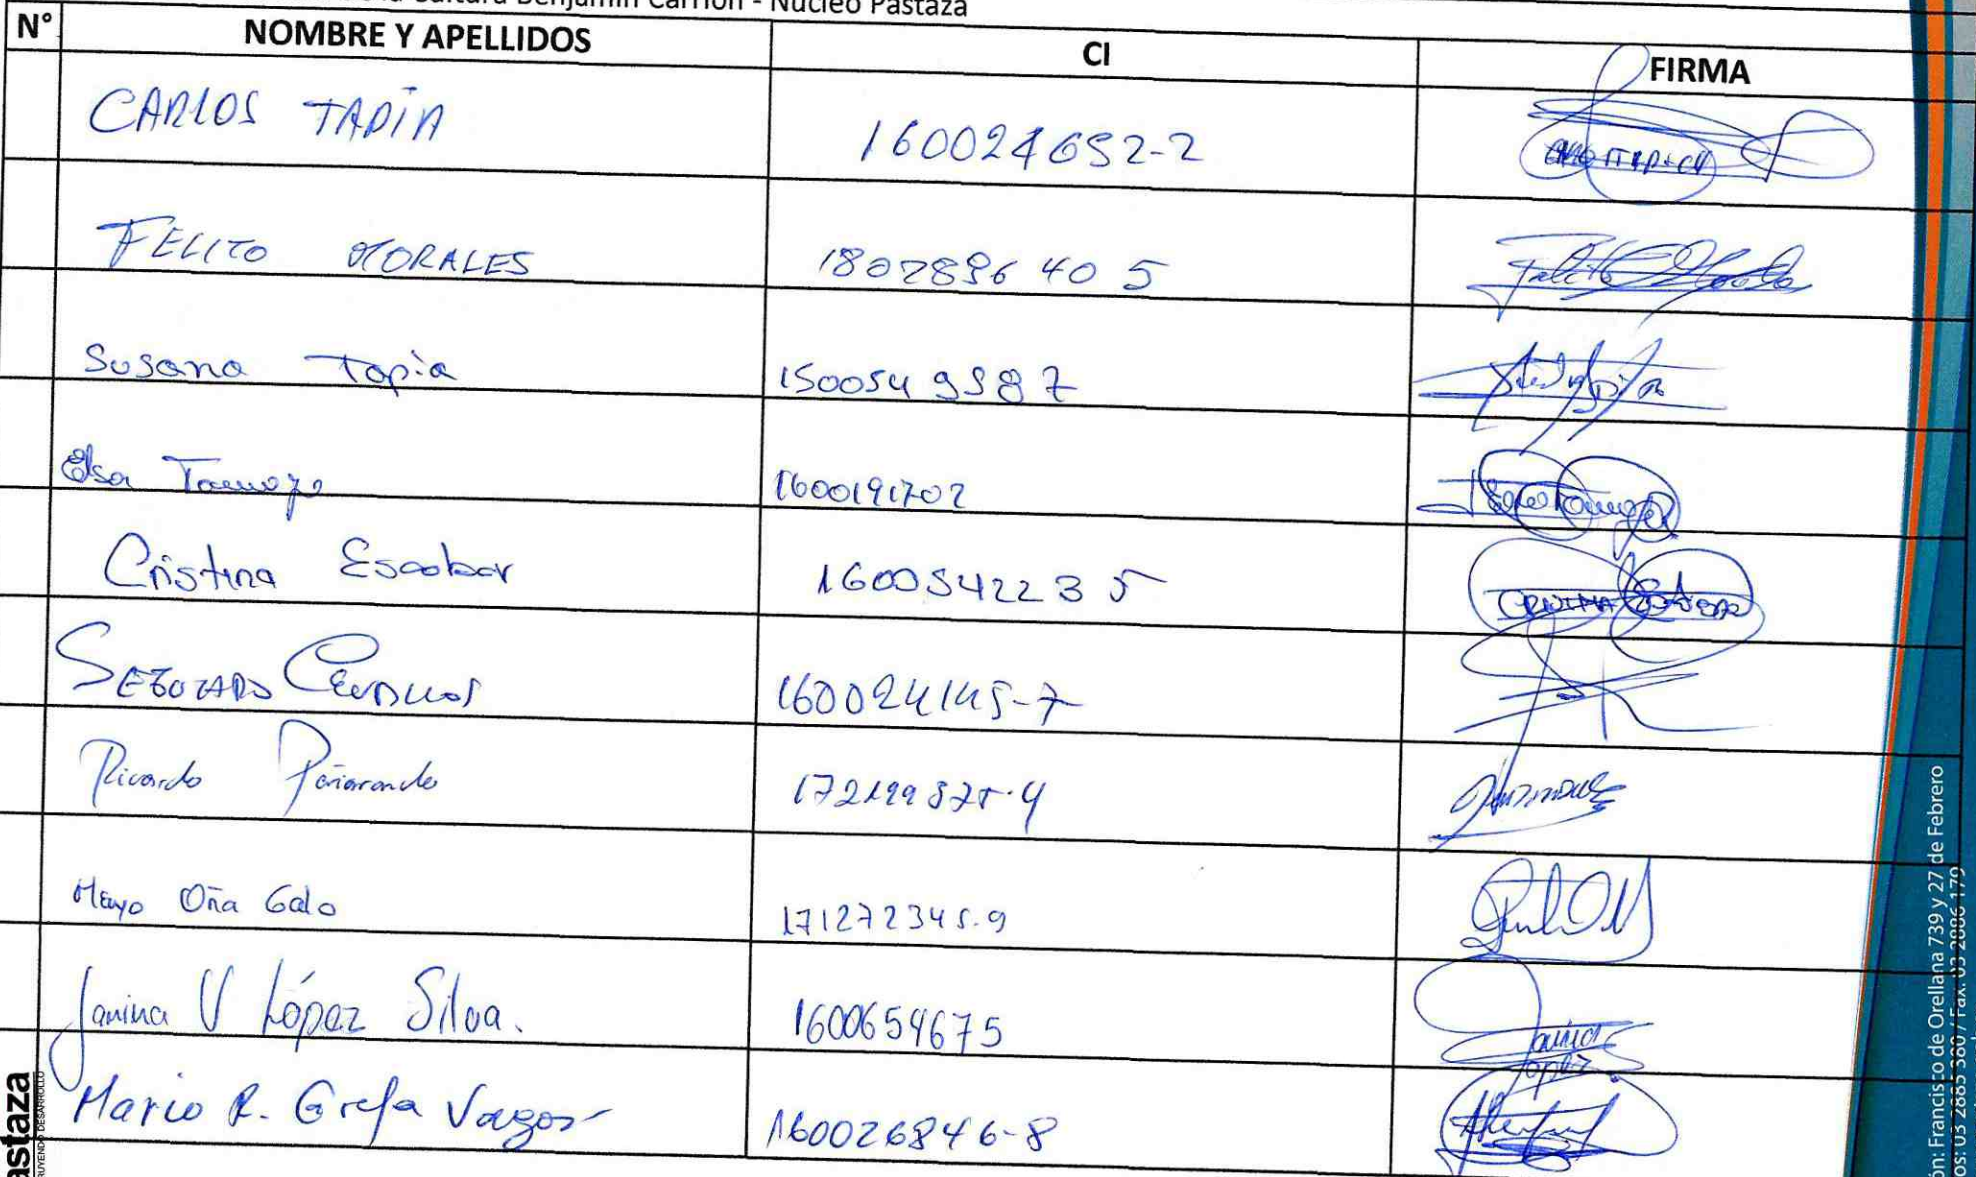 la Cultura Benjamín Carrión - Núcleo Pastaza
N° NOMBRE Y APELLIDOS CI FIRMA
CARLOS TAPIA 160024652-2
FELITO MORALES 180289640 5
Susana Tapia 1500549987
Elsa Tamayo 1600191702
Cristina Escobar 1600542235
SEGUNDO 160024145-7
Ricardo Peñaranda
Mayo Oña Galo 171272345.9
Janina V López Silva. 1600659675
Janina
López
Mario R. Grefa Vargas 160026846-8
astaza
RUYENDO DESARROLLO
ón: Francisco de Orellana 739 y 27 de Febrero
os: 03 2885 380 / Fax: 03 2886 179